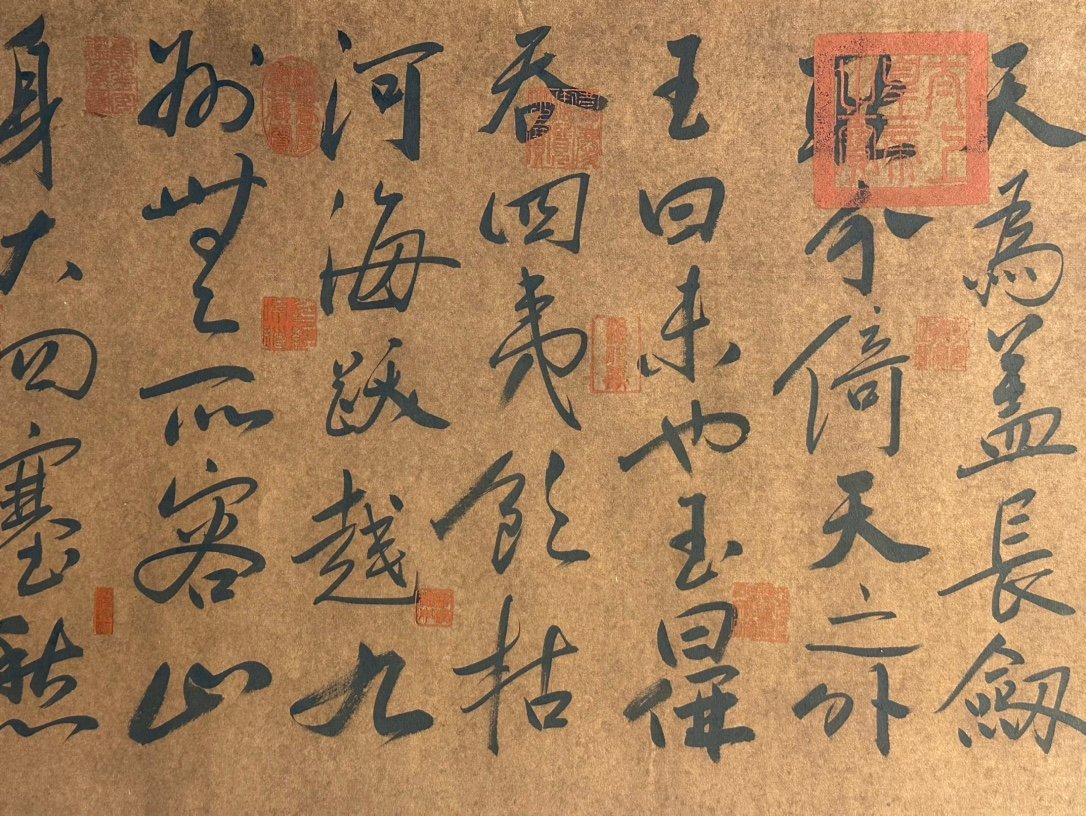 天為盖長劔
耿介倚天之外
王曰未也玉曰併
吞四夷飲枯
河海跋越九
州無所容止
身大四塞愁